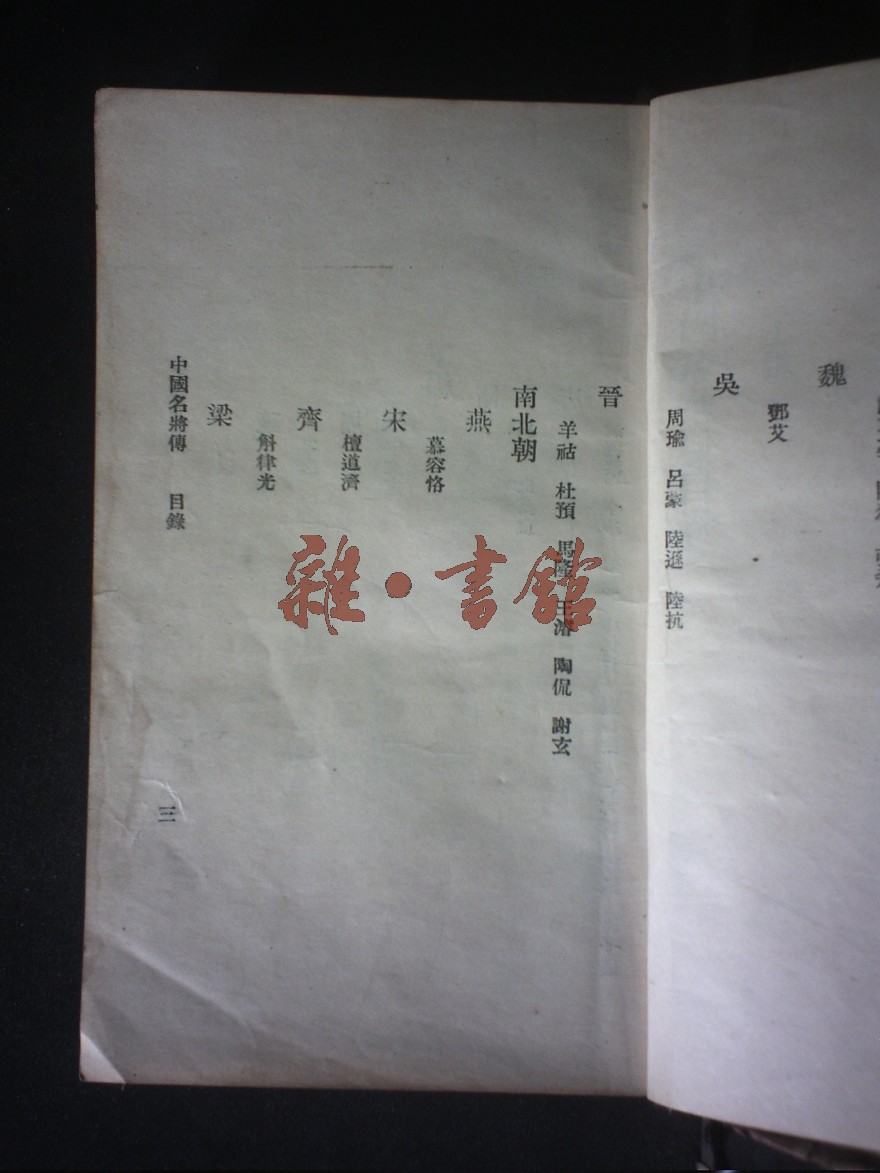 魏
鄧艾
吳
周瑜 呂蒙 陸遜 陸抗
晉
羊祜 杜預 馬隆 王濬 陶侃 謝玄
南北朝
燕
慕容恪
宋
檀道濟
齊
斛律光
梁
中國名將傳 目錄
三
雜·書館